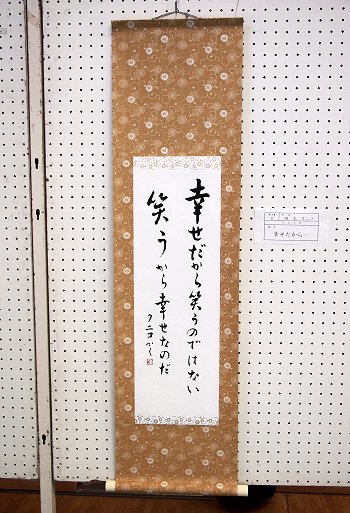 幸せだから笑うのではない
笑うから幸せなのだ
クニコかく
幸せだから…